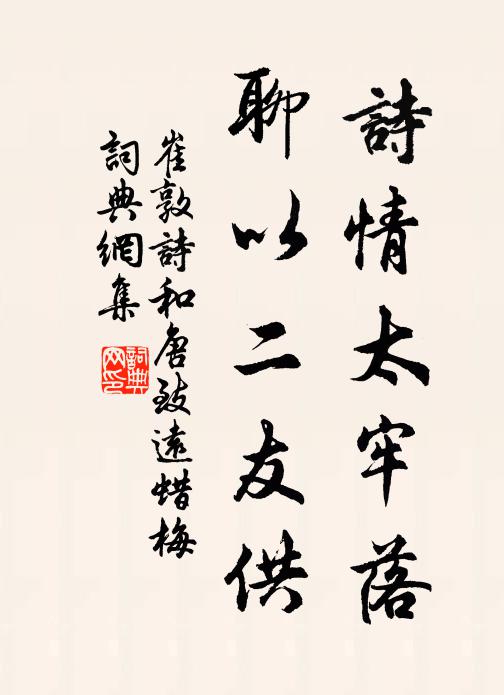 詩情太牢落
聊以二友供
崔敦詩和唐致遠蜡梅
詞典網集
詞典网印